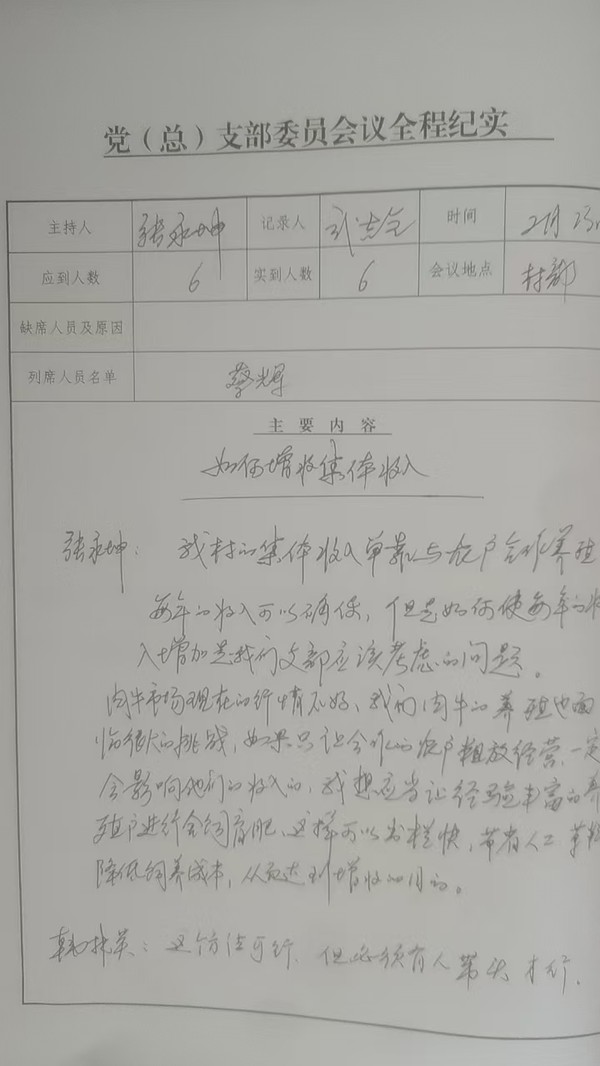 党（总）支部委员会议全程纪实
主持人 张永坤 记录人 时间 2月
应到人数 6 实到人数 6 会议地点 村部
缺席人员及原因
列席人员名单 蔡辉
主要内容
如何增收集体收入
张永坤：我村的集体收入单靠与农户合作养殖
每年的收入可以确保，但是如何使每年的收
入增加是我们支部应该考虑的问题。
肉牛市场现在的行情不好，我们肉牛的养殖也面
临很大的挑战，如果只让合作的农户粗放经营，一定
会影响他们的收入的，我想应当让经验丰富的养
殖户进行全饲育肥，这样可以出栏快，节省人工草料
降低饲养成本，从而达到增收的目的。
韩艳英：这个方法可行，但必须有人带头才行，